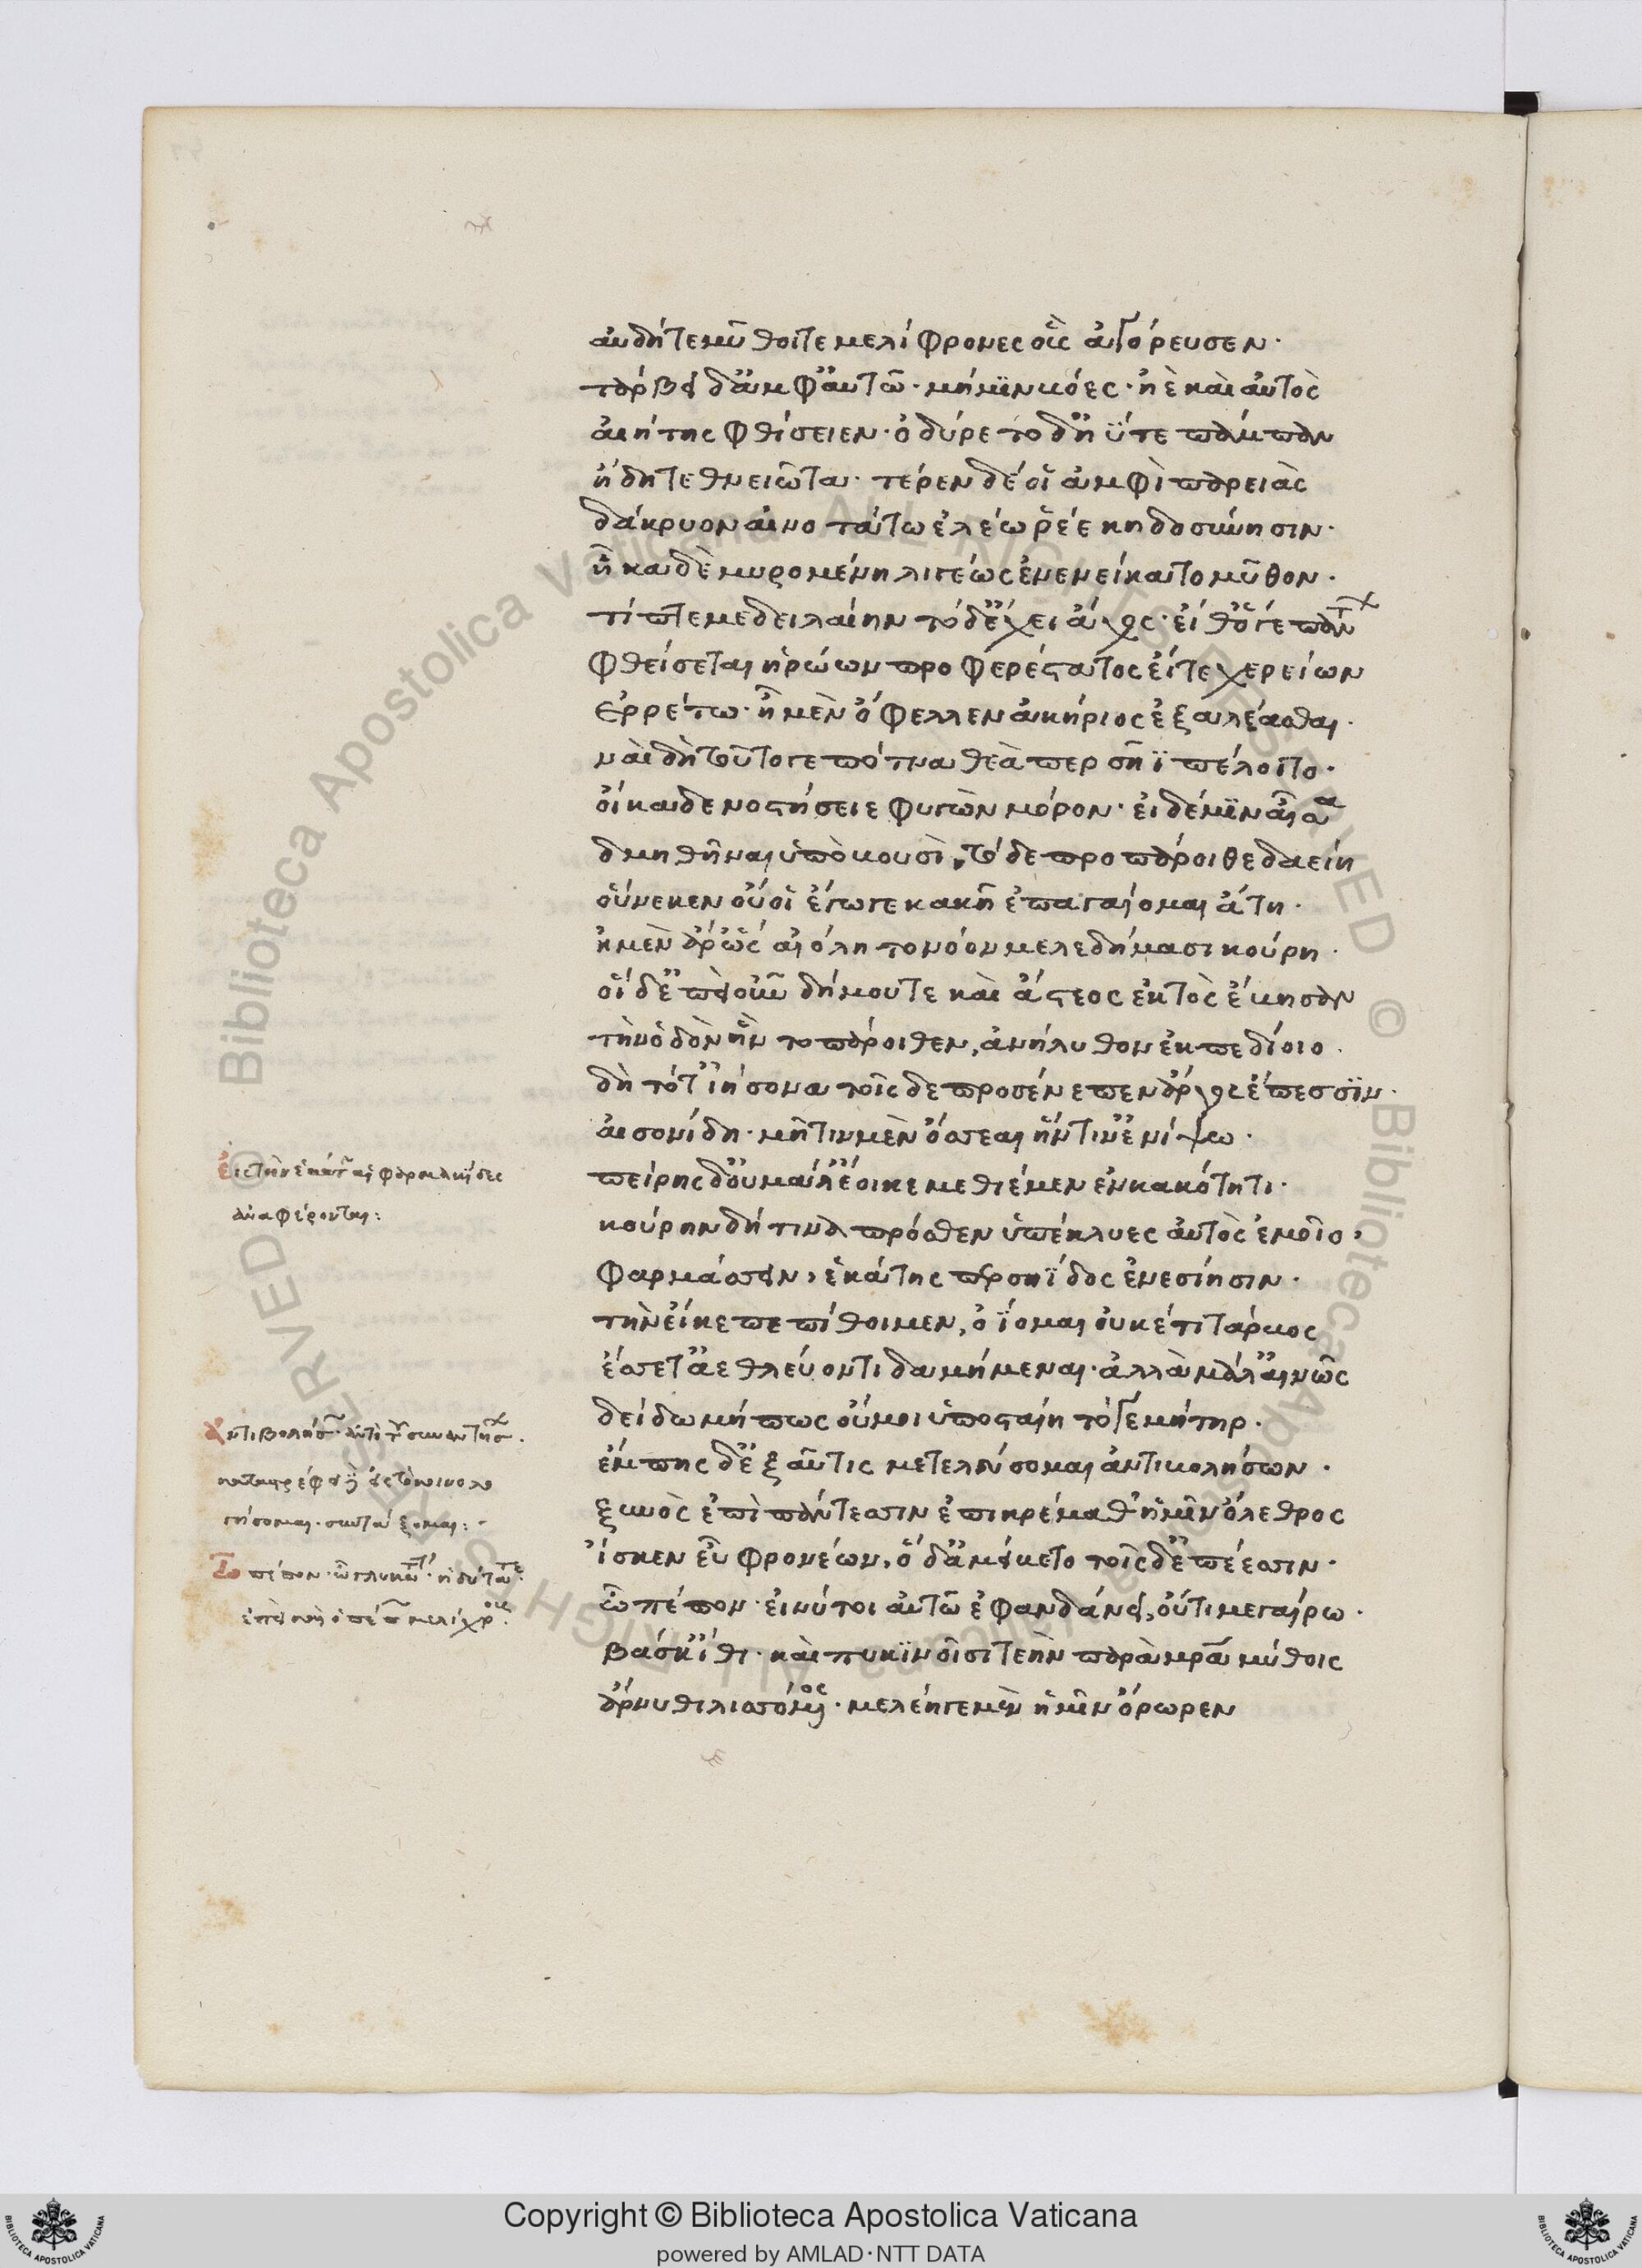 αὐδή τε μῦθοί τε μελίφρονες οὓς ἀγόρευσεν·
τάρβει δ' ἀμφ' αὐτῶ· μή μιν βόες· ἠὲ καὶ αὐτὸς
αἰήτης φθίσειεν· ὀδύρετο δ' ἠΰτε πάμπαν
ἤδη τεθνειῶτα· τέρεν δέ οἱ ἀμφὶ παρειὰς
δάκρυον αἰνοτάτω ἐλέω ῥέε κηδοσύνησιν·
ἦκα δὲ μυρομένη λιγέως ἐνενείκατο μῦθον·
τίπτε με δειλαίην τόδ' ἔχει ἄχος· εἴθ' ὅγε πάντων
φθείσεται ἡρώων προφερέστατος εἴτε χερείων
ἐρρέτω· ἦ μὲν ὄφελλεν ἀκήριος ἐξαλέασθαι·
ναὶ δὴ τοῦτό γε πότνα θεὰ περσηῒ πέλοιτο·
οἴκαδε νοστήσειε φυγὼν μόρον· εἰ δέ μιν αἶσα
δμηθῆναι ὑπὸ βουσὶ, τόδε προπάροιθε δαείη
οὕνεκεν οὔ οἱ ἔγωγε κακῆ ἐπαγαίομαι ἄτη·
ἡ μὲν ἄρ' ὣς αἰόλητο νόον μελεδήμασι κούρη·
οἱ δ' ἐπεὶ οὖν δήμου τε καὶ ἄστεος ἐκτὸς ἔβησαν
τὴν ὁδὸν ἣν τοπάροιθεν, ἀνήλυθον ἐκ πεδίοιο·
δὴ τότ' ἰήσονα τοῖσδε προσένεπεν ἄργος ἐπεσσιν·
αἰσονίδη· μῆτιν μὲν ὀνόσσεαι ἥντιν' ἐνίψω·
πείρης δ' οὐ μάλ' ἔοικε μεθιέμεν ἐν κακότητι·
κούρην δή τινα πρόσθεν ὑπέκλυες αὐτὸς ἐμοῖο,
φαρμάσσειν, ἑκάτης περσηΐδος ἐνεσίησιν·
τὴν εἴ κε πεπίθοιμεν, ὀΐομαι οὐκέτι τάρβος
ἔσσετ' ἀεθλεύοντι δαμήμεναι· ἀλλὰ μάλ' αἰνῶς
δείδω μή πως οὔ μοι ὑποσταίη τόγε μήτηρ·
ἔμπης δ' ἐξαῦτις μετελεύσομαι ἀντιβολήσων·
ξυνὸς ἐπὶ πάντεσσιν ἐπικρέμαθ' ἡμῖν ὄλεθρος
ἴσκεν ἐῢ φρονέων, ὁ δ' ἀμείβετο τοῖσδ' ἐπέεσσιν·
ὦ πέπον· εἴ νύ τοι αὐτῶ ἐφανδάνει, οὔτι μεγαίρω·
βάσκ' ἴθι· καὶ πυκινοῖσι τεὴν παρὰ μητέρα μύθοις
ὄρνυθι λισσόμενος· μελέη γε μὲν ἡμῖν ὄρωρεν
εἰς τὴν ἑκάτην αἱ φαρμακίδες
ἀναφέρονται:
ἀντιβολήσων· ἀντὶ τοῦ συναντήσων·